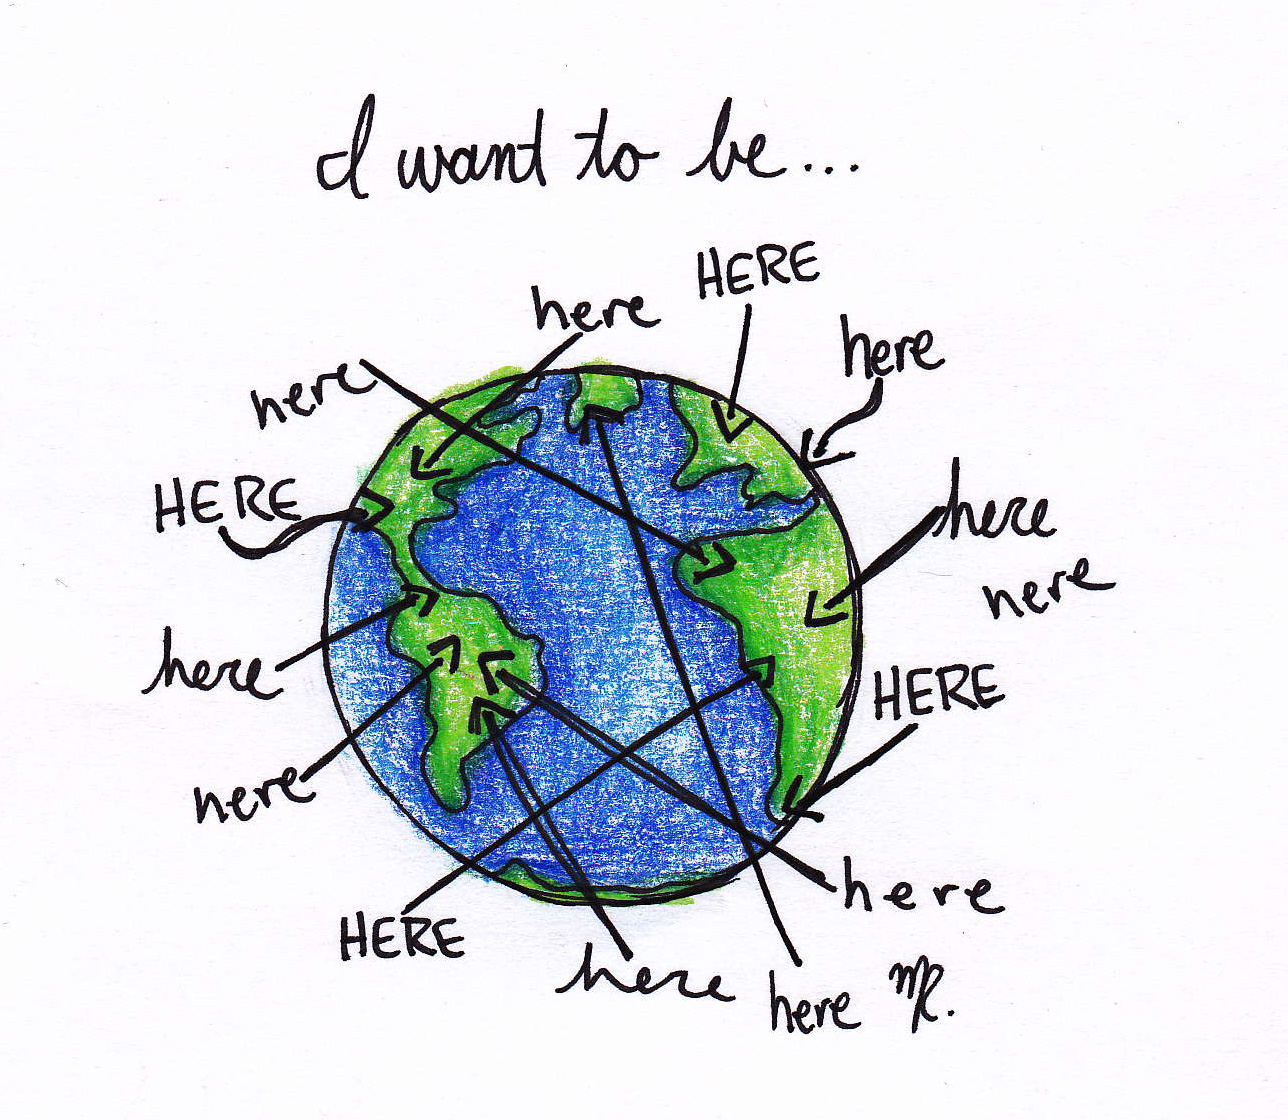 I want to be...
HERE
here
here
here
HERE
here
here
here
HERE
here
here
HERE
here
here MR.